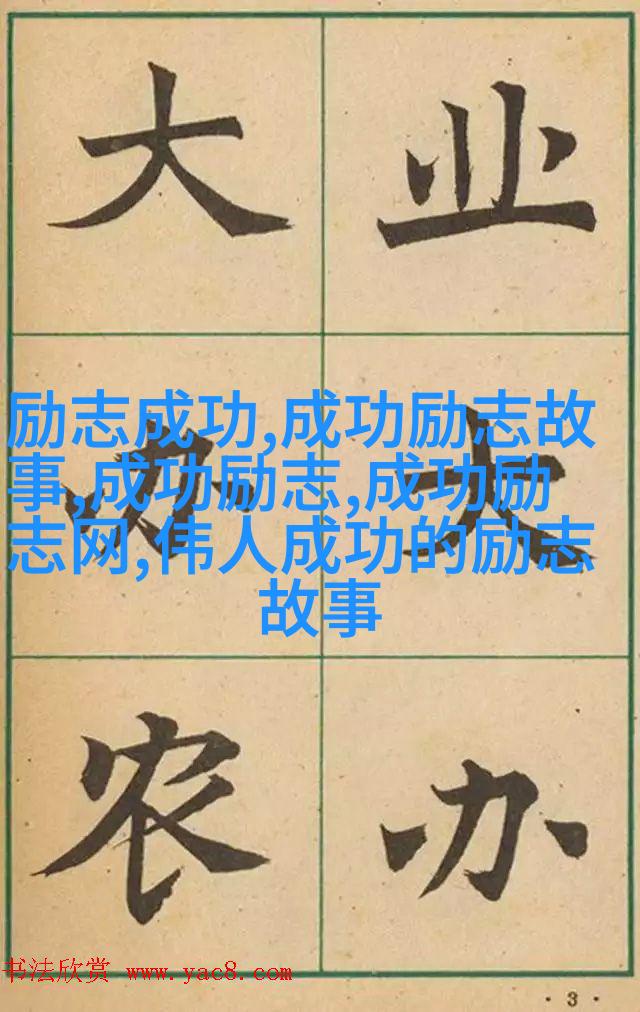 大办农
业大办
励志成功,成功励志故
事,成功励志,成功励
志网,伟人成功的励志
故事
书法欣赏 www.yac8.com
· 3 ·